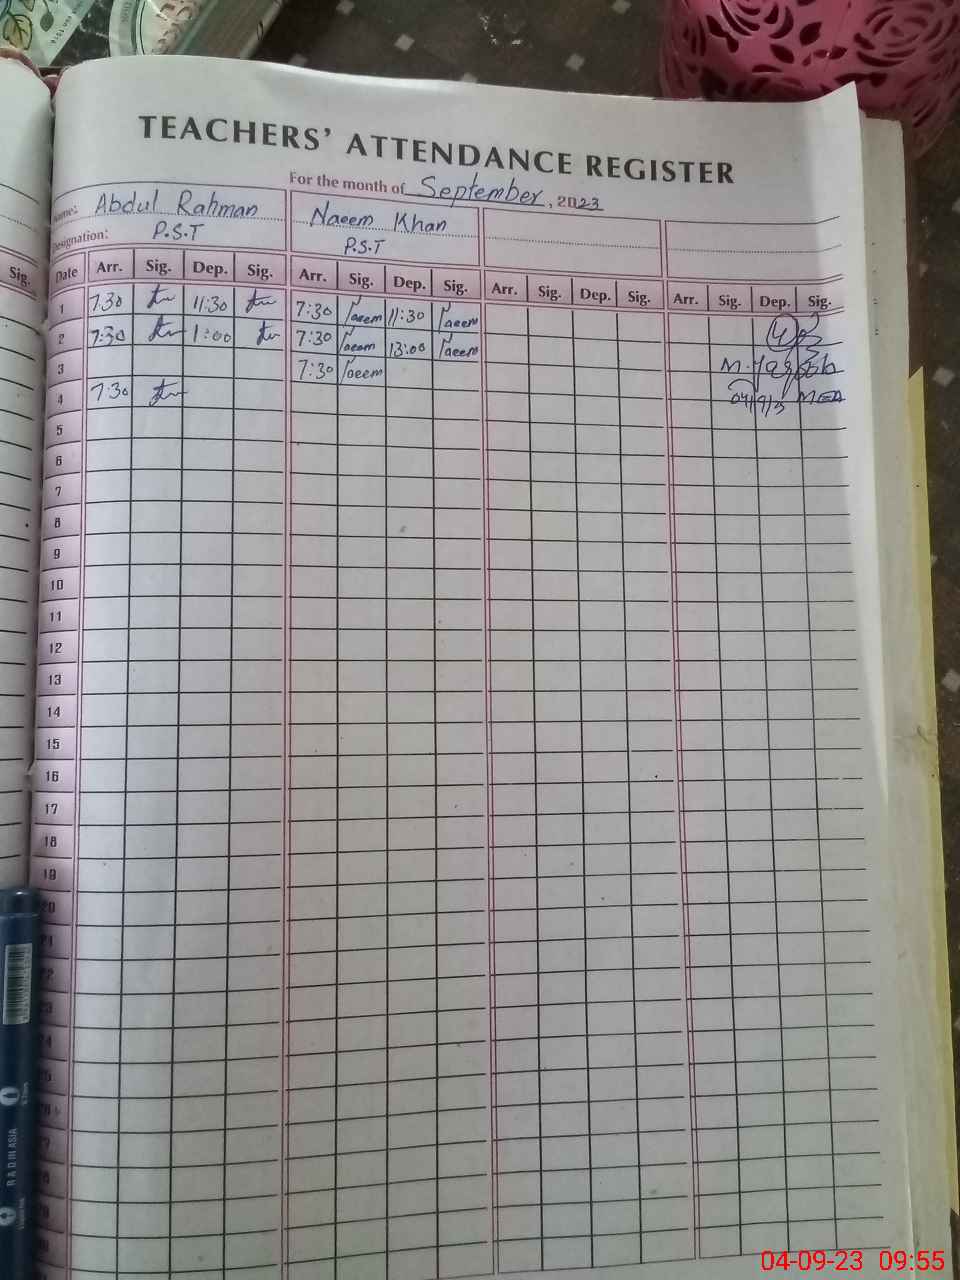 TEACHERS' ATTENDANCE REGISTER
For the month of September, 2023
Name: Abdul Rahman Naeem Khan
Designation: P.S.T P.S.T
Sig.
Date Arr. Sig. Dep. Sig. Arr. Sig. Dep. Sig. Arr. Sig. Dep. Sig. Arr. Sig. Dep. Sig.
1 7:30 11:30 7:30 Naeem 11:30 Naeem
2 7:30 1:00 7:30 Naeem 13:00 Naeem
3 7:30 Naeem M.
4 7:30 MEA
5
6
7
8
9
10
11
12
13
14
15
16
17
18
19
20
21
22
23
24
25
26
RADINASIA
04-09-23 09:55